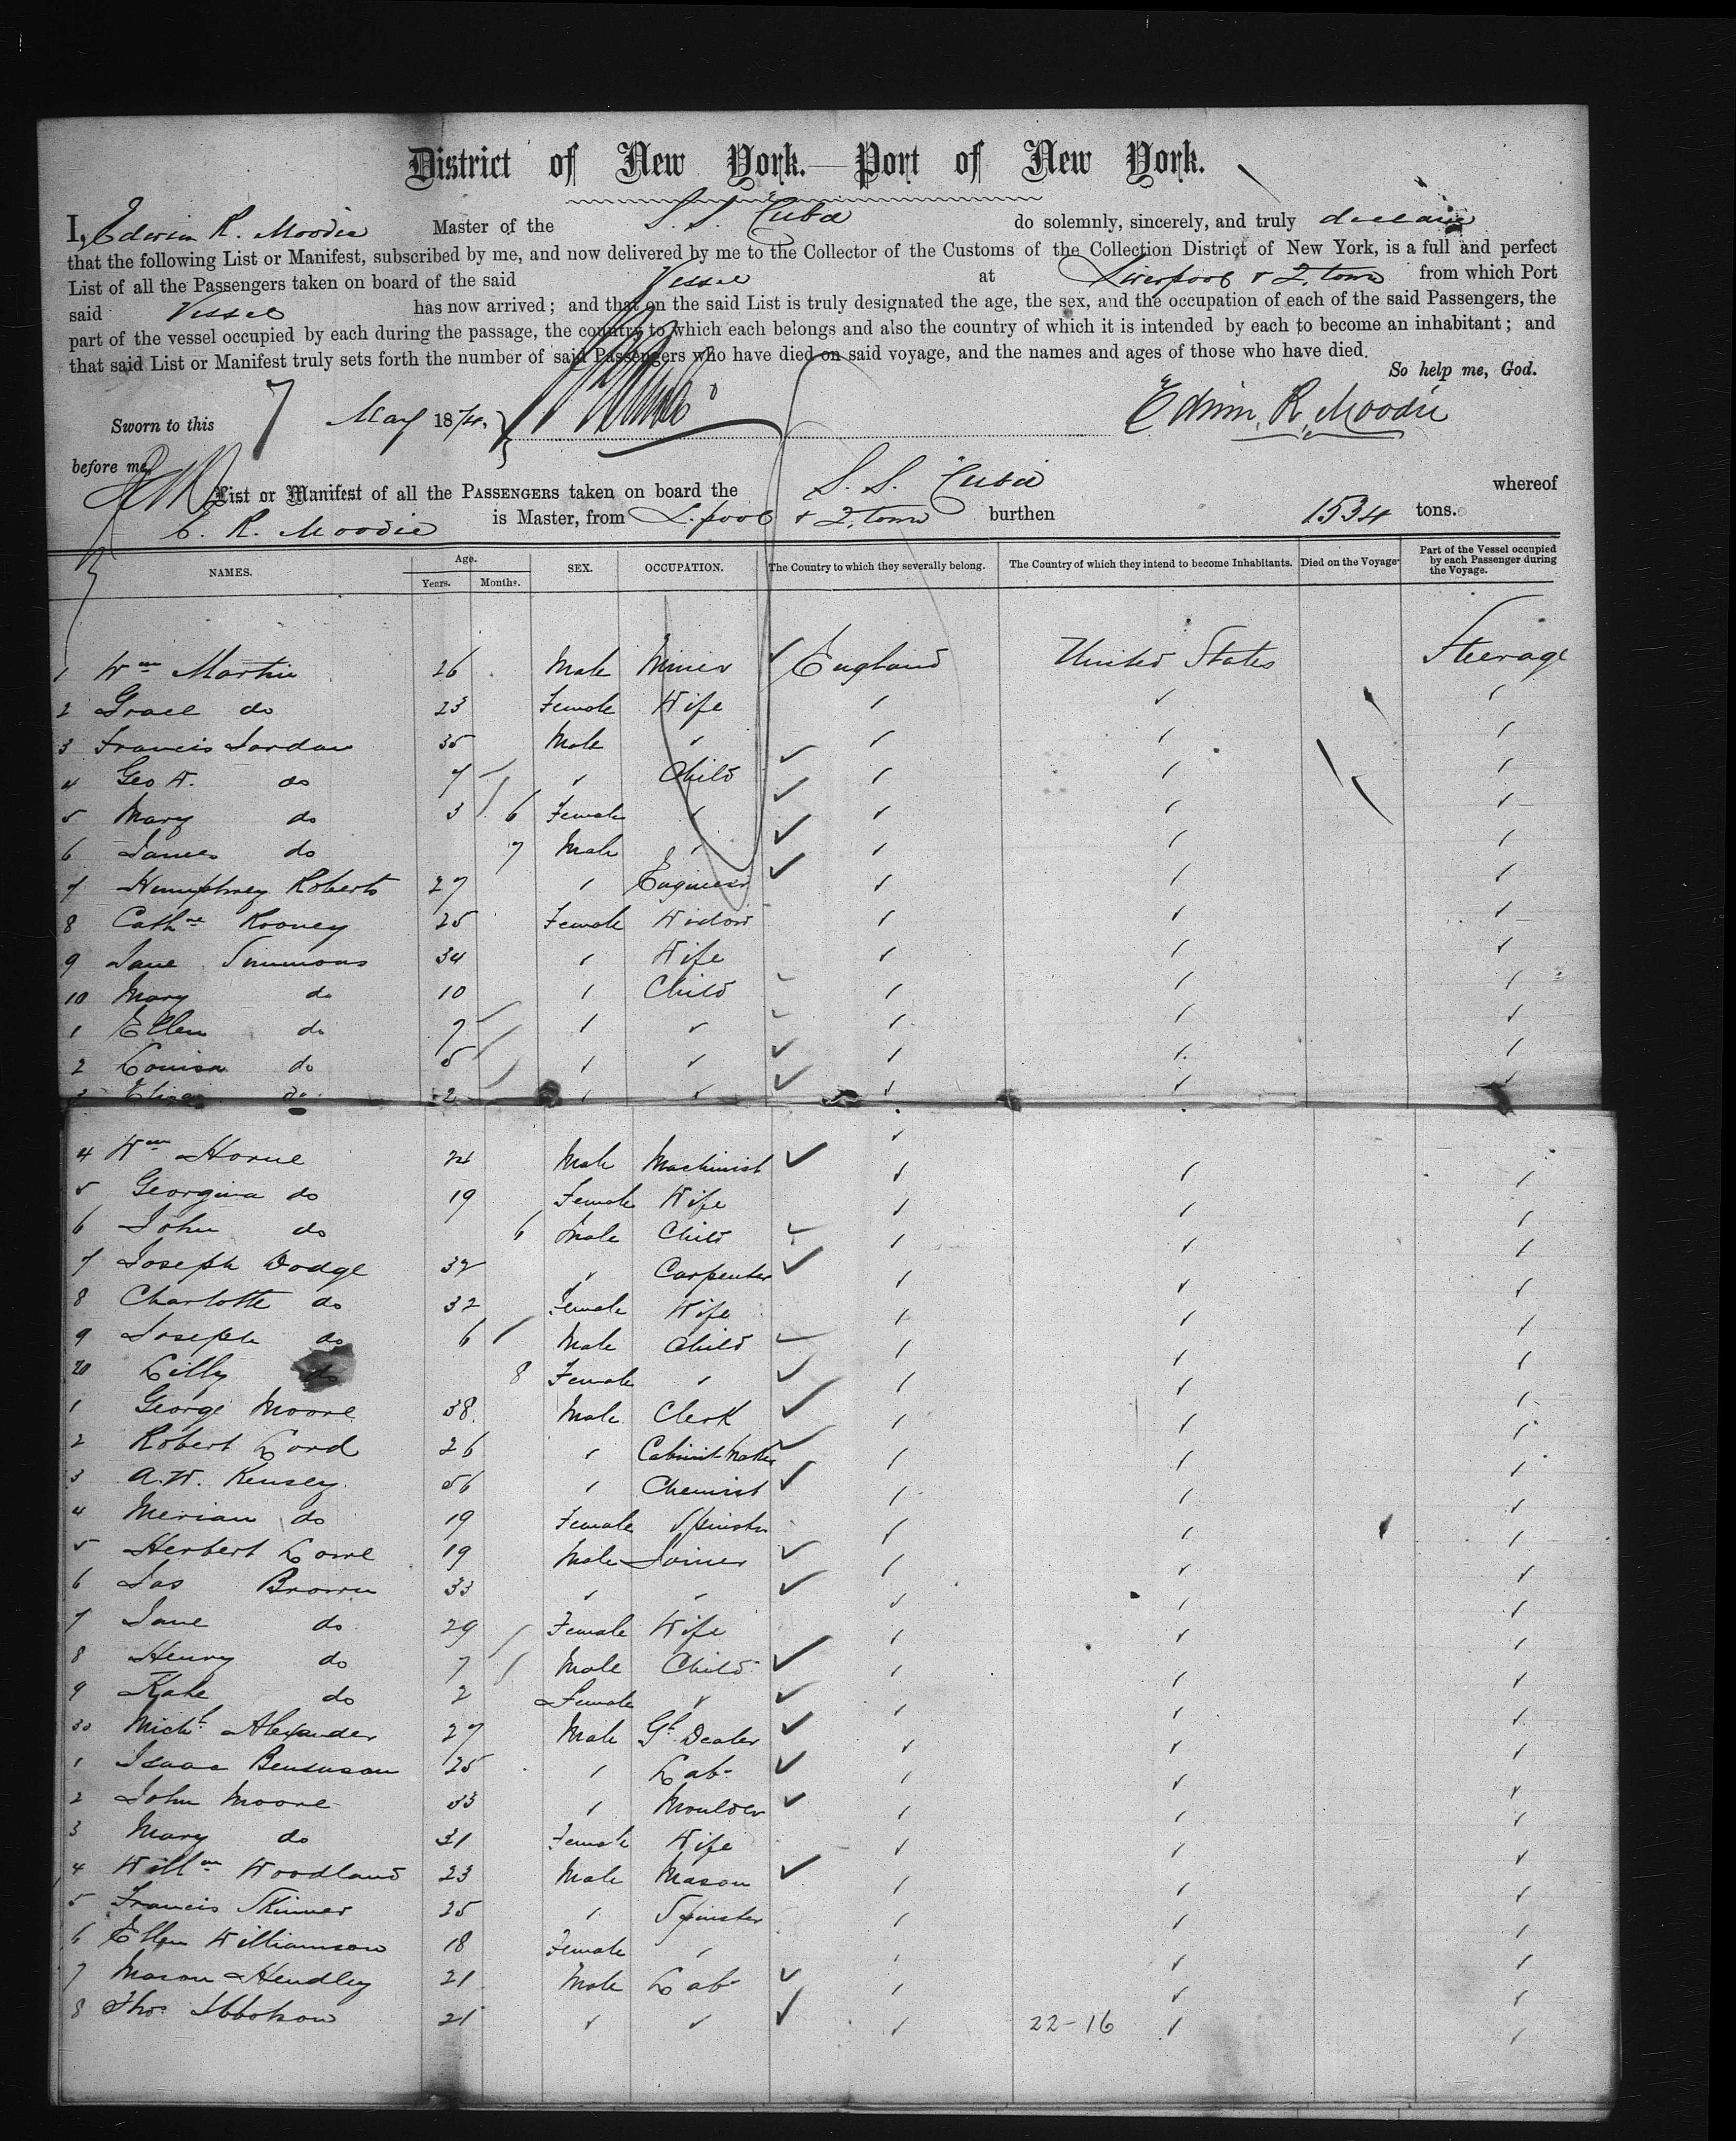 District of New York.—Port of New York.
I, Edwin R. Moodie Master of the S. S. Cuba do solemnly, sincerely, and truly declare
that the following List or Manifest, subscribed by me, and now delivered by me to the Collector of the Customs of the Collection District of New York, is a full and perfect
List of all the Passengers taken on board of the said Vessel at Liverpool & Q. town from which Port
said Vessel has now arrived; and that on the said List is truly designated the age, the sex, and the occupation of each of the said Passengers, the
part of the vessel occupied by each during the passage, the country to which each belongs and also the country of which it is intended by each to become an inhabitant; and
that said List or Manifest truly sets forth the number of said Passengers who have died on said voyage, and the names and ages of those who have died.
So help me, God.
Sworn to this 7 May 1874. Edwin. R. Moodie
before me
List or Manifest of all the PASSENGERS taken on board the S. S. Cuba whereof
E. R. Moodie is Master, from L. pool & Q. town burthen 1534 tons.
NAMES. Age. Years. Months. SEX. OCCUPATION. The Country to which they severally belong. The Country of which they intend to become Inhabitants. Died on the Voyage. Part of the Vessel occupied by each Passenger during the Voyage.
1 Wm Martin 26 Male Miner England United States Steerage
2 Grace do 23 Female Wife
3 Francis Jordan 35 Male
4 Geo W. do 7 Child
5 Mary do 3 6 Female
6 James do 7 Male
7 Humphrey Roberts 27 Engineer
8 Cathne Rooney 25 Female Widow
9 Jane Simmons 34 Wife
10 Mary do 10 Child
1 Ellen do 7
2 Louisa do 5
3 Eliza do 2
4 Wm Horne 24 Male Machinist
5 Georgina do 19 Female Wife
6 John do 6 Male Child
7 Joseph Dodge 32 Carpenter
8 Charlotte do 32 Female Wife
9 Joseph do 6 Male Child
20 Lilly do 8 Female
1 George Moore 38 Male Clerk
2 Robert Lord 26 Cabinet Maker
3 A. W. Kensey 56 Chemist
4 Merian do 19 Female Spinster
5 Herbert Lowe 19 Male Joiner
6 Jas Brown 33
7 Jane do 29 Female Wife
8 Henry do 7 Male Child
9 Kate do 2 Female
30 Michl Alexander 27 Male Gl Dealer
1 Isaac Bensusan 25 Lab
2 John Moore 33 Moulder
3 Mary do 31 Female Wife
4 Willm Woodland 23 Male Mason
5 Francis Skinner 25 Spinster
6 Ellen Williamson 18 Female
7 Mason Hendley 21 Male Lab
8 Thos Ibbotson 21 22-16